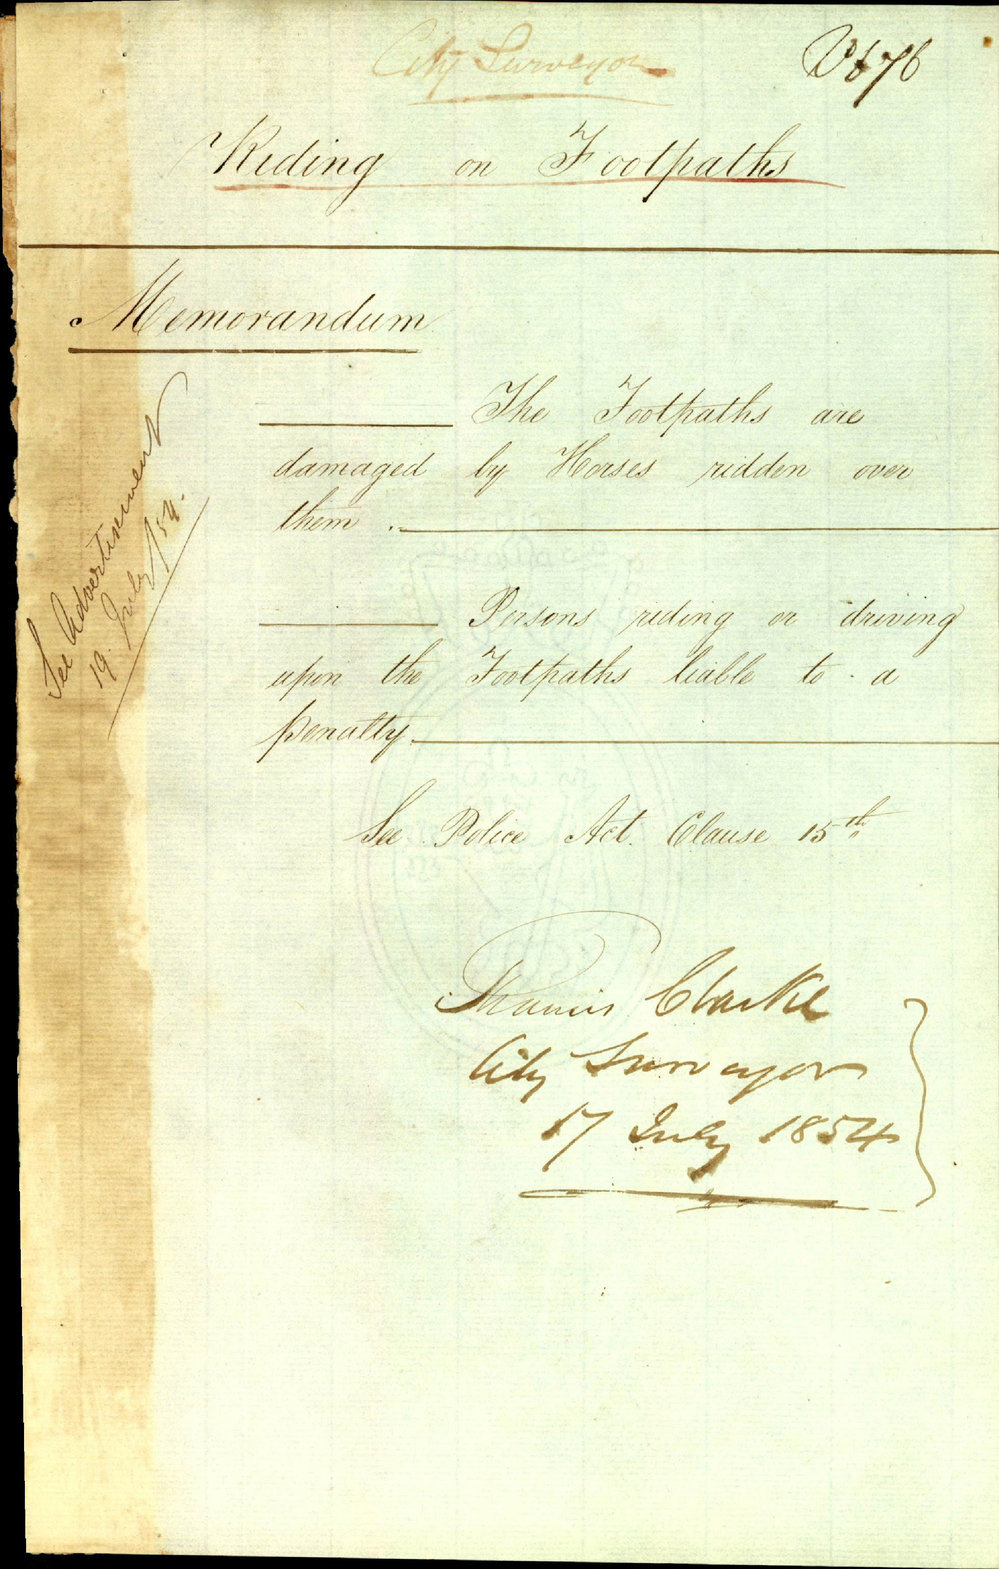 City Surveyor
Riding on Footpaths
Memorandum
The Footpaths are
damaged by Horses ridden over
them.
Persons riding or driving
upon the Footpaths liable to a
penalty.
See Police Act. Clause 15th
Francis Clarke
City Surveyor
17 July 1854
See Advertisement
19. July /54.